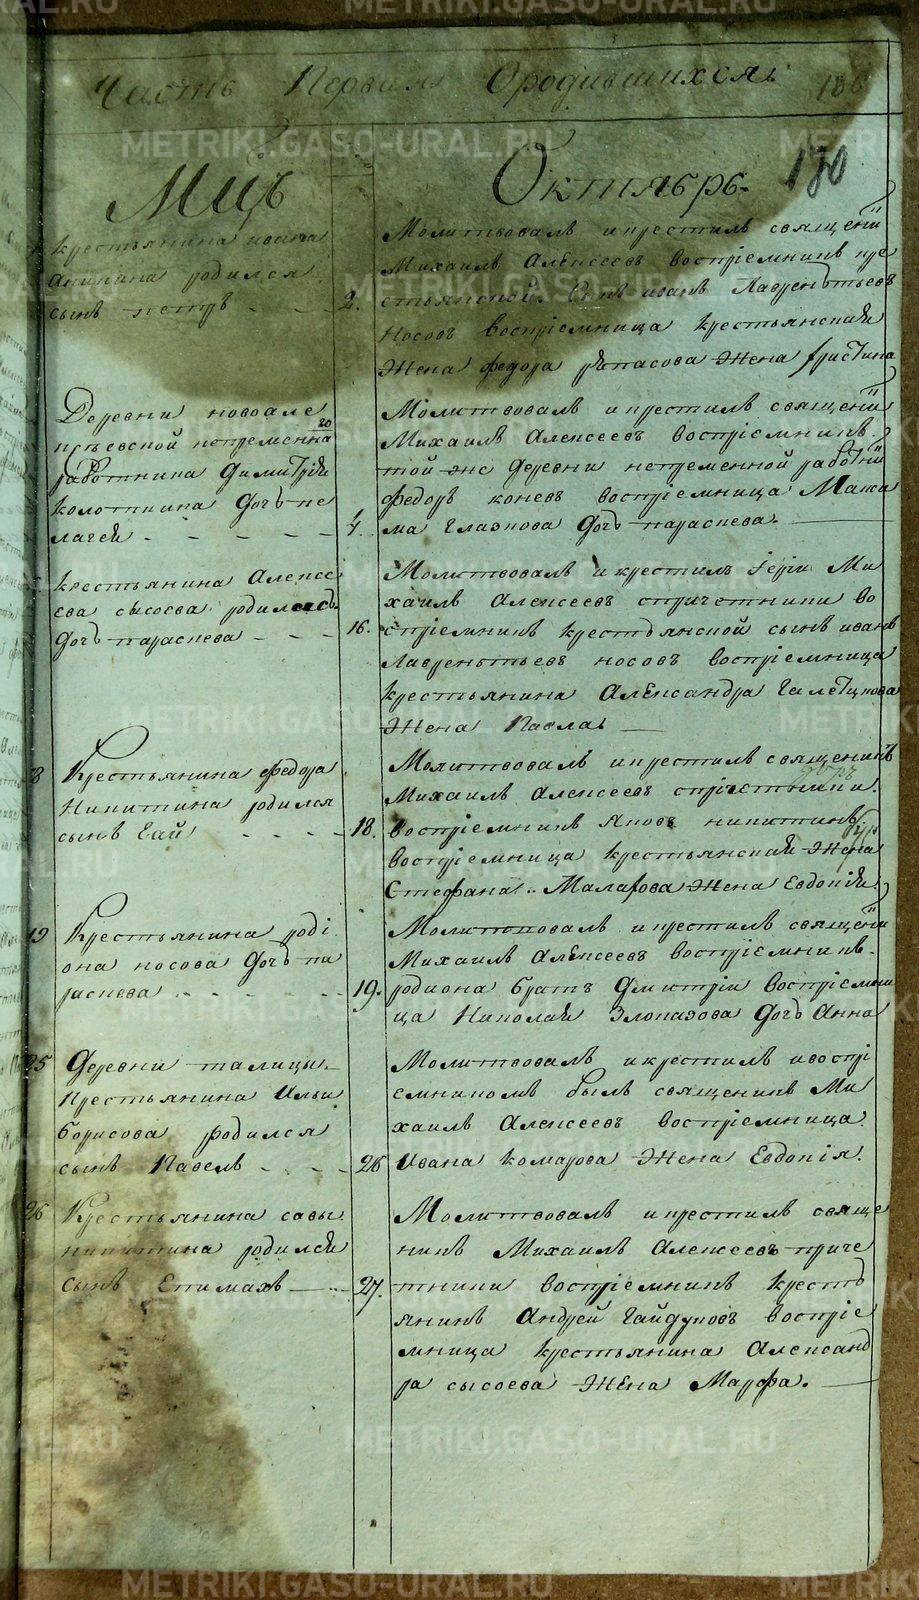 Часть Первая О родившихся
180
Мцъ Октябрь
крестьянина ивана
Аникина родился
сынъ петръ
2.
Молитвовалъ и крестилъ священ
Михаилъ Алексеевъ воспріемникъ кре
стьянской сынъ иванъ Лаврентьевъ
Носовъ воспріемница крестьянская
Жена федора
Жена
Деревни новоале
ксѣевской непременна
20
работника димитрия
колотнина дочь пе
лагея
4.
Молитвовалъ и крестилъ священ
Михаилъ Алексеевъ воспріемникъ
той же деревни непременной работни
федоръ коневъ воспріемница Макси
ма глазкова дочь параскева.
крестьянина Алексе
ева сысоева родилась
дочь параскева
16.
Молитвовалъ и крестилъ Іерги Ми
хаилъ Алексеевъ с причетники во
спріемникъ крестьянской сынъ иванъ
Лаврентьевъ носовъ воспріемница
крестьянина Александра
Жена Павла
8
Крестьянина федора
Никитина родился
сынъ Гай
18.
Молитвовалъ и крестилъ священикъ
Михаилъ Алексеевъ с причетники.
воспріемникъ яковъ никитинъ.
воспріемница крестьянская Жена
Стефана Маларова Жена Евдокия.
19
Крестьянина роді
она носова дочь па
раскева
19.
Молитвовалъ и крестилъ священ
Михаилъ Алексеевъ воспріемникъ.
родиона братъ дмитрій воспріемни
ца Николая Злоказова дочь Анна
25
Деревни талицы
крестьянина Ильи
борисова родился
сынъ Павелъ
26
Молитвовалъ и крестилъ и воспрі
емникомъ былъ священикъ Ми
хаилъ Алексеевъ воспріемница
Ивана комарова Жена Евдокія.
26
Крестьянина савы
никитина родился
сынъ Епимахъ
27.
Молитвовалъ и крестилъ свяще
никъ Михаилъ Алексеевъ приче
тники воспріемникъ крестъ
янинъ Андрей Гайдуковъ воспріе
мница крестьянина Александ
ра сысоева Жена Марфа.
METRIKI.GASO-URAL.RU